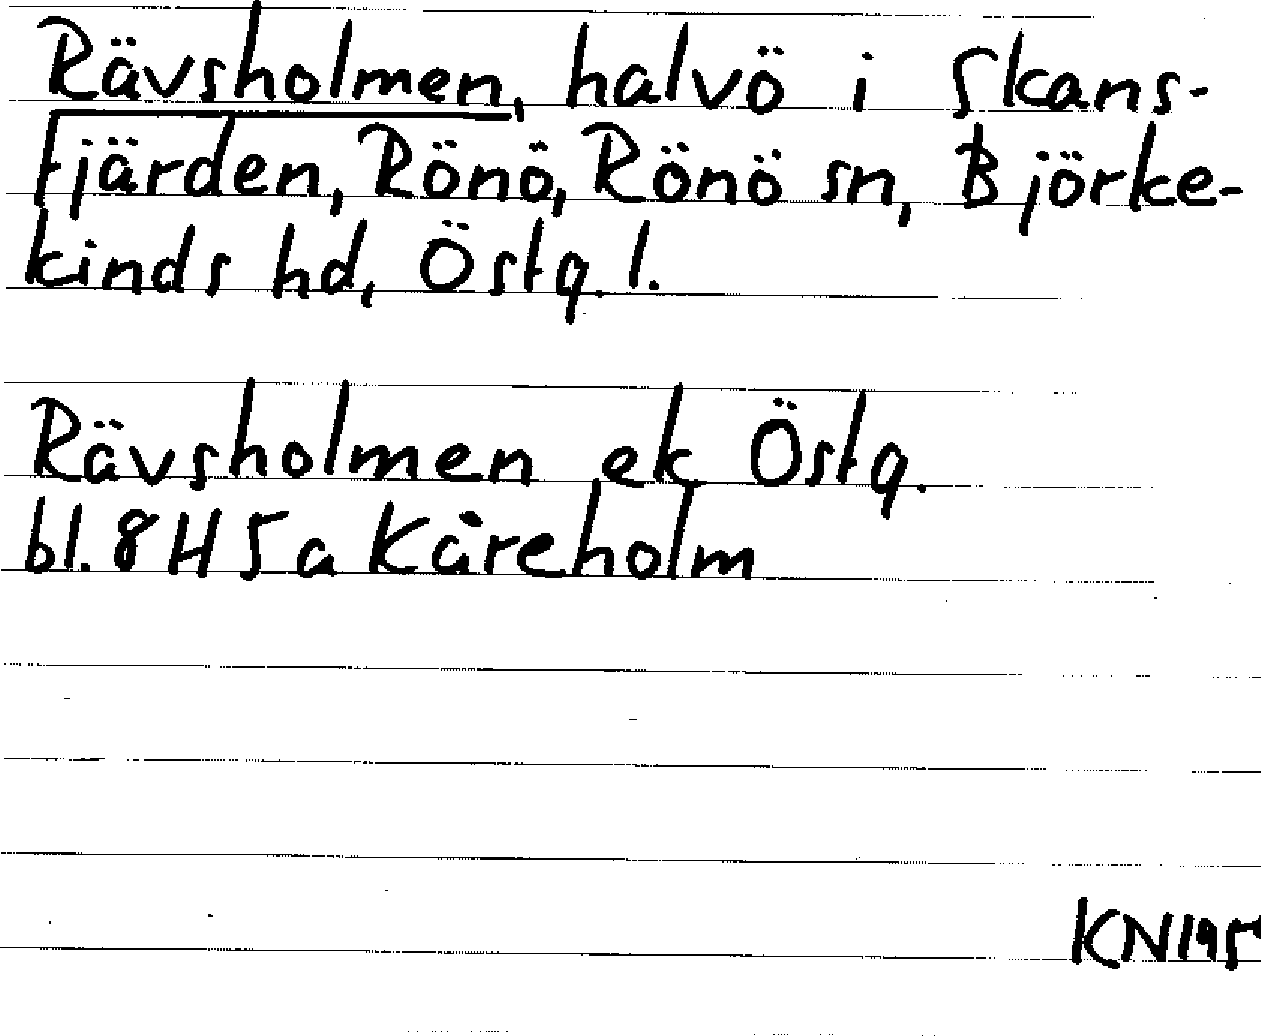 Rävsholmen, halvö i Skans-
fjärden, Rönö, Rönö sn, Björke-
kinds hd, Östg. l.
Rävsholmen ek Östg.
bl. 8 H 5 a Kåreholm